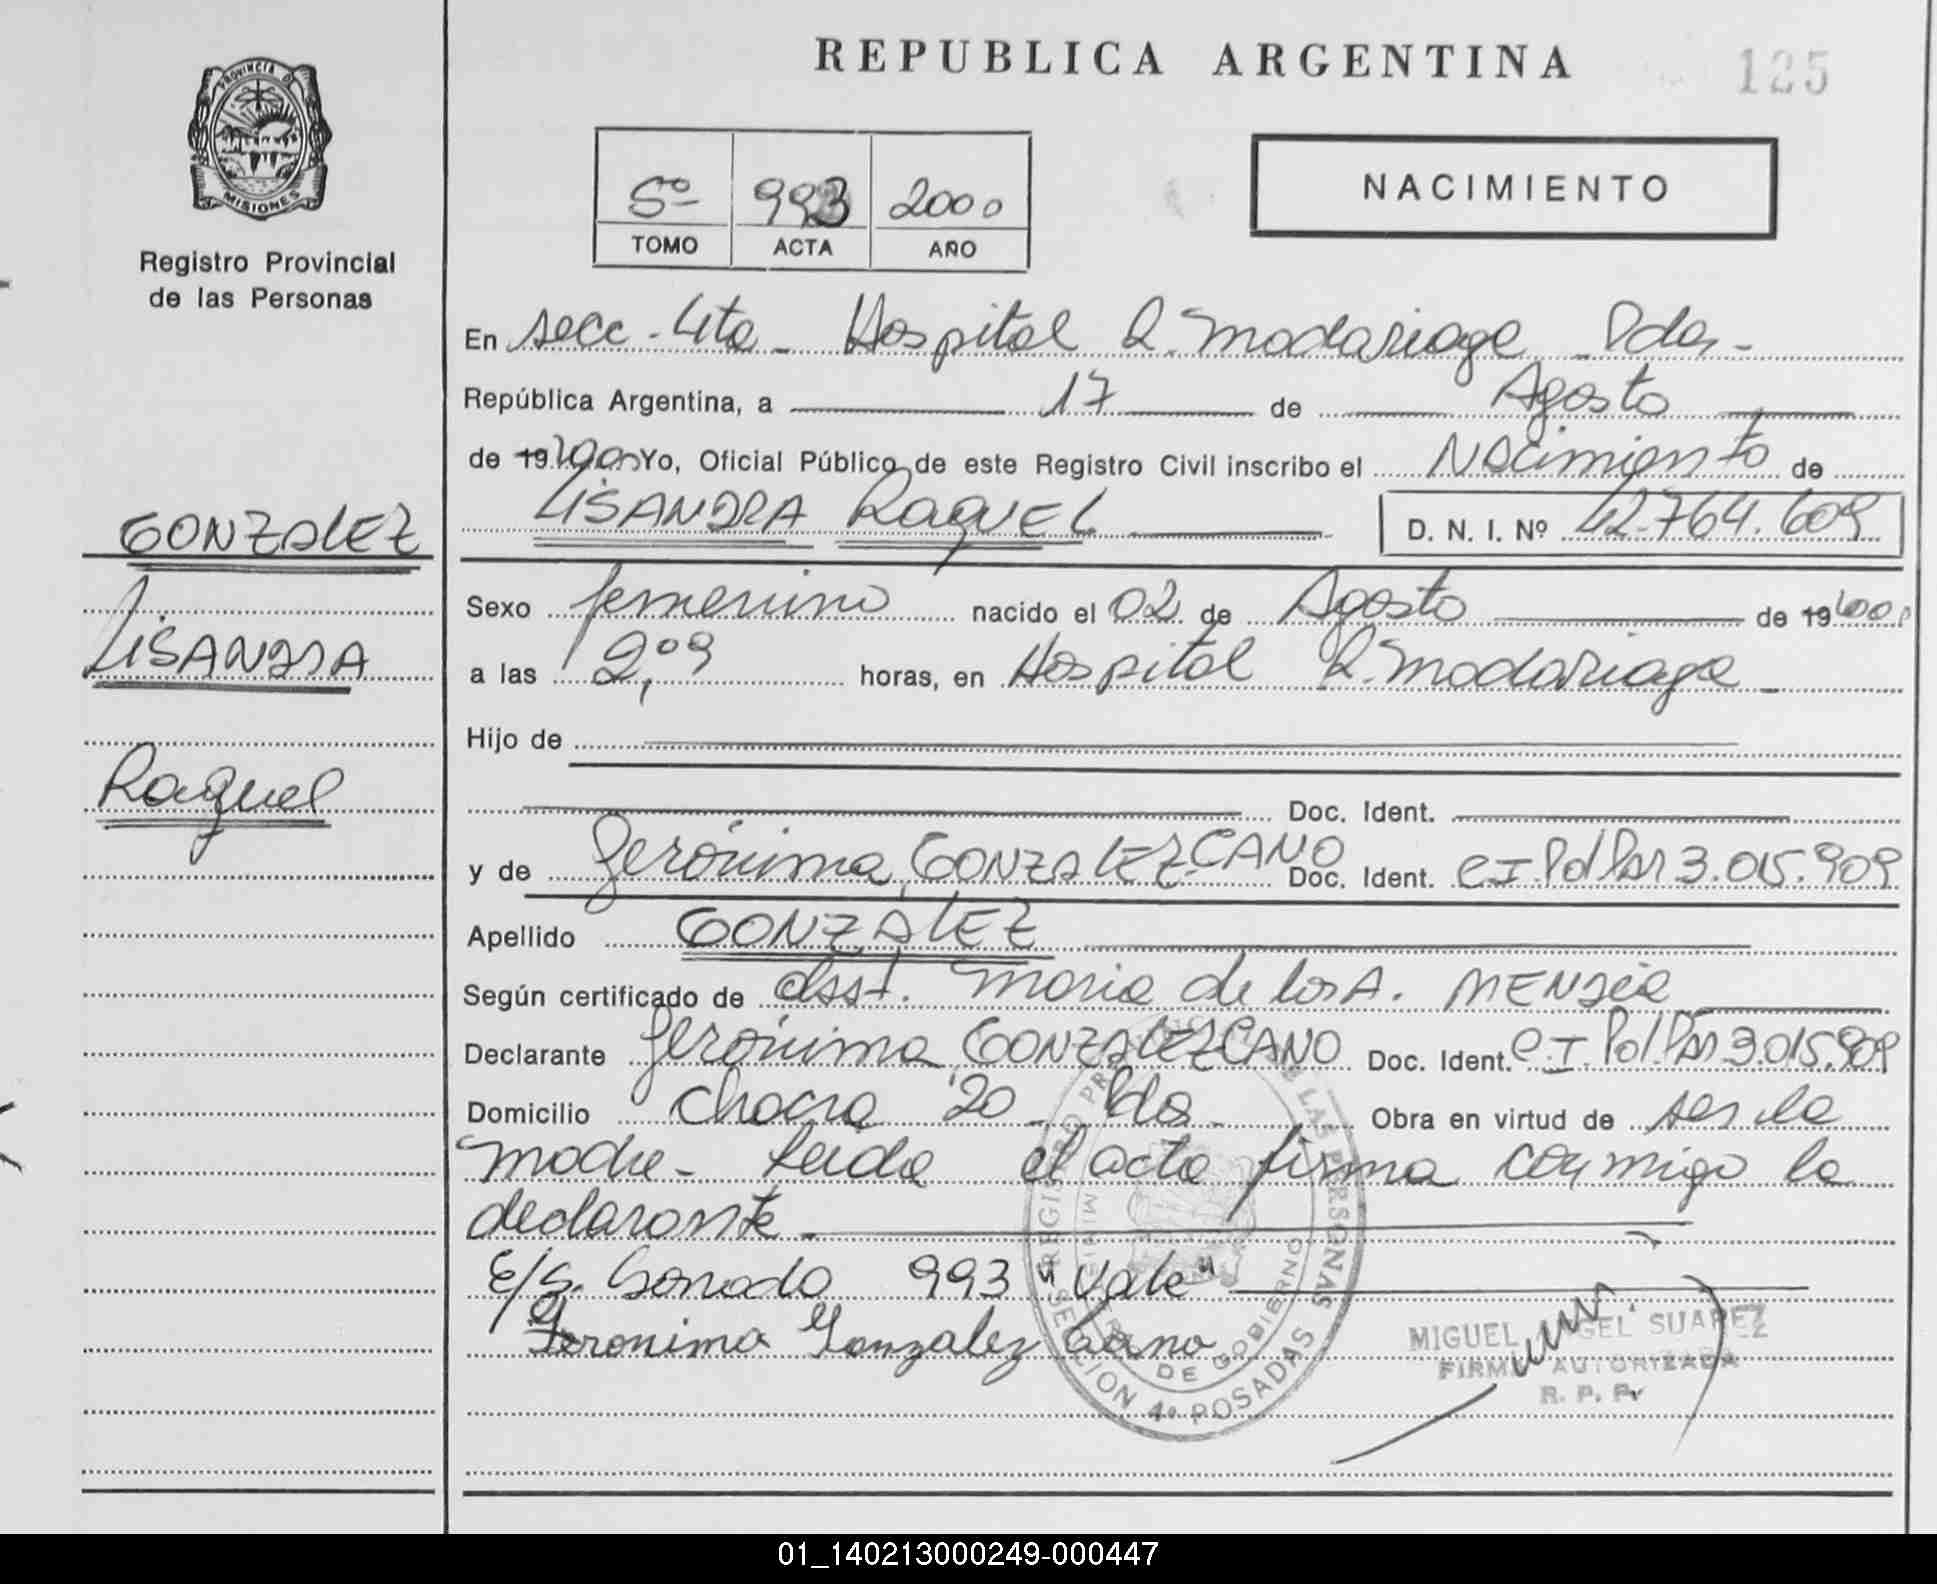 REPUBLICA ARGENTINA
125
PROVINCIA D
MISIONES
Registro Provincial
de las Personas
5º 993 2000
TOMO ACTA AÑO
NACIMIENTO
En secc. 4ta - Hospital R. Madariaga - Pdas -
República Argentina, a 17 de Agosto
de 19 2000 Yo, Oficial Público de este Registro Civil inscribo el Nacimiento de
LISANDRA RAQUEL D. N. I. Nº 42.764.609
GONZALEZ
LISANDRA
Raquel
Sexo femenino nacido el 02 de Agosto de 19 2000
a las 2,09 horas, en Hospital R. Madariaga -
Hijo de
Doc. Ident.
y de Jerónima GONZALEZ CANO Doc. Ident. C.I. Pol Par 3.015.909
Apellido GONZÁLEZ
Según certificado de obst. Maria de los A. MENDEZ
Declarante Jerónima GONZALEZ CANO Doc. Ident. C.I. Pol. Par 3.015.909
Domicilio Chacra 20 - Pdas - Obra en virtud de ser la
madre - Leida el acta firma conmigo la
declarante -
E/S. Borrado 993 "Vale"
Jeronima Gonzalez Cano
REGISTRO PROVINCIAL DE LAS PERSONAS
DE GOBIERNO
SECCION 4º POSADAS
MIGUEL ANGEL SUAREZ
FIRMA AUTORIZADA
R. P. P.
01_140213000249-000447